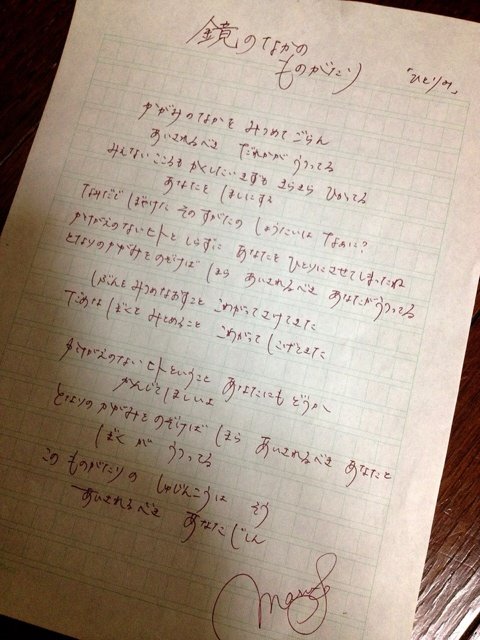 鏡のなかの
ものがたり
「ひとりみ」
かがみのなかを みつめて ごらん
あいされるべき だれかが うつってる
みえない こころも かくしたい きずも きらきら ひかってる
あなたを ほしにする
なみだで ぼやけた そのすがたの しょうたいは なぁに?
かけがえのないヒトと しらずに あなたを ひとりにさせてしまったね
となりのかがみをのぞけば ほら あいされるべき あなたがうつってる
じぶんを みつめなおすこと こわがって さけてきた
ぼくを みとめること こわがって にげてきた
かけがえのない ヒトということ あなたにも どうか
かんじて ほしいよ
となりの かがみを のぞけば ほら あいされるべき あなたと
ぼくが うつってる
この ものがたりの しゅじんこうは そう
あいされるべき あなたじしん